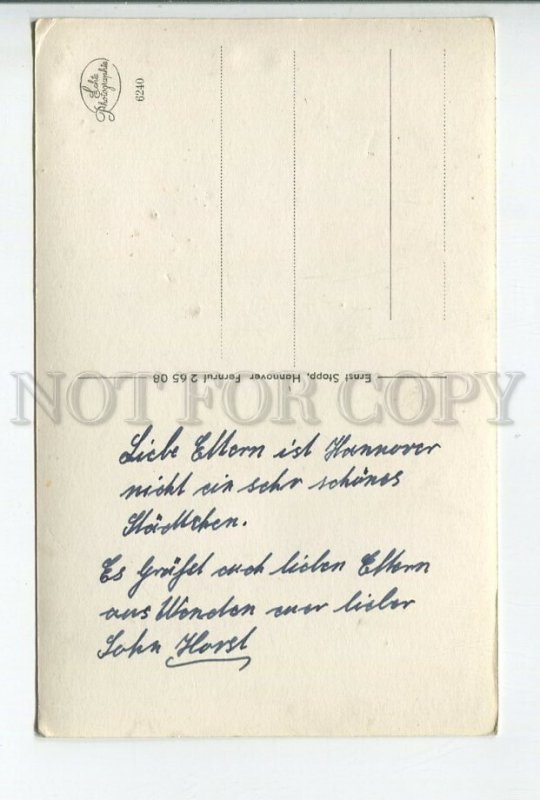 Echte
Photographie
6240
Ernst Stopp, Hannover Fernruf 2 65 08
NOT FOR COPY
Liebe Eltern ist Hannover
nicht ein sehr schönes
Städtchen.
Es Grüßt euch lieben Eltern
aus Wenden euer lieber
Sohn Horst